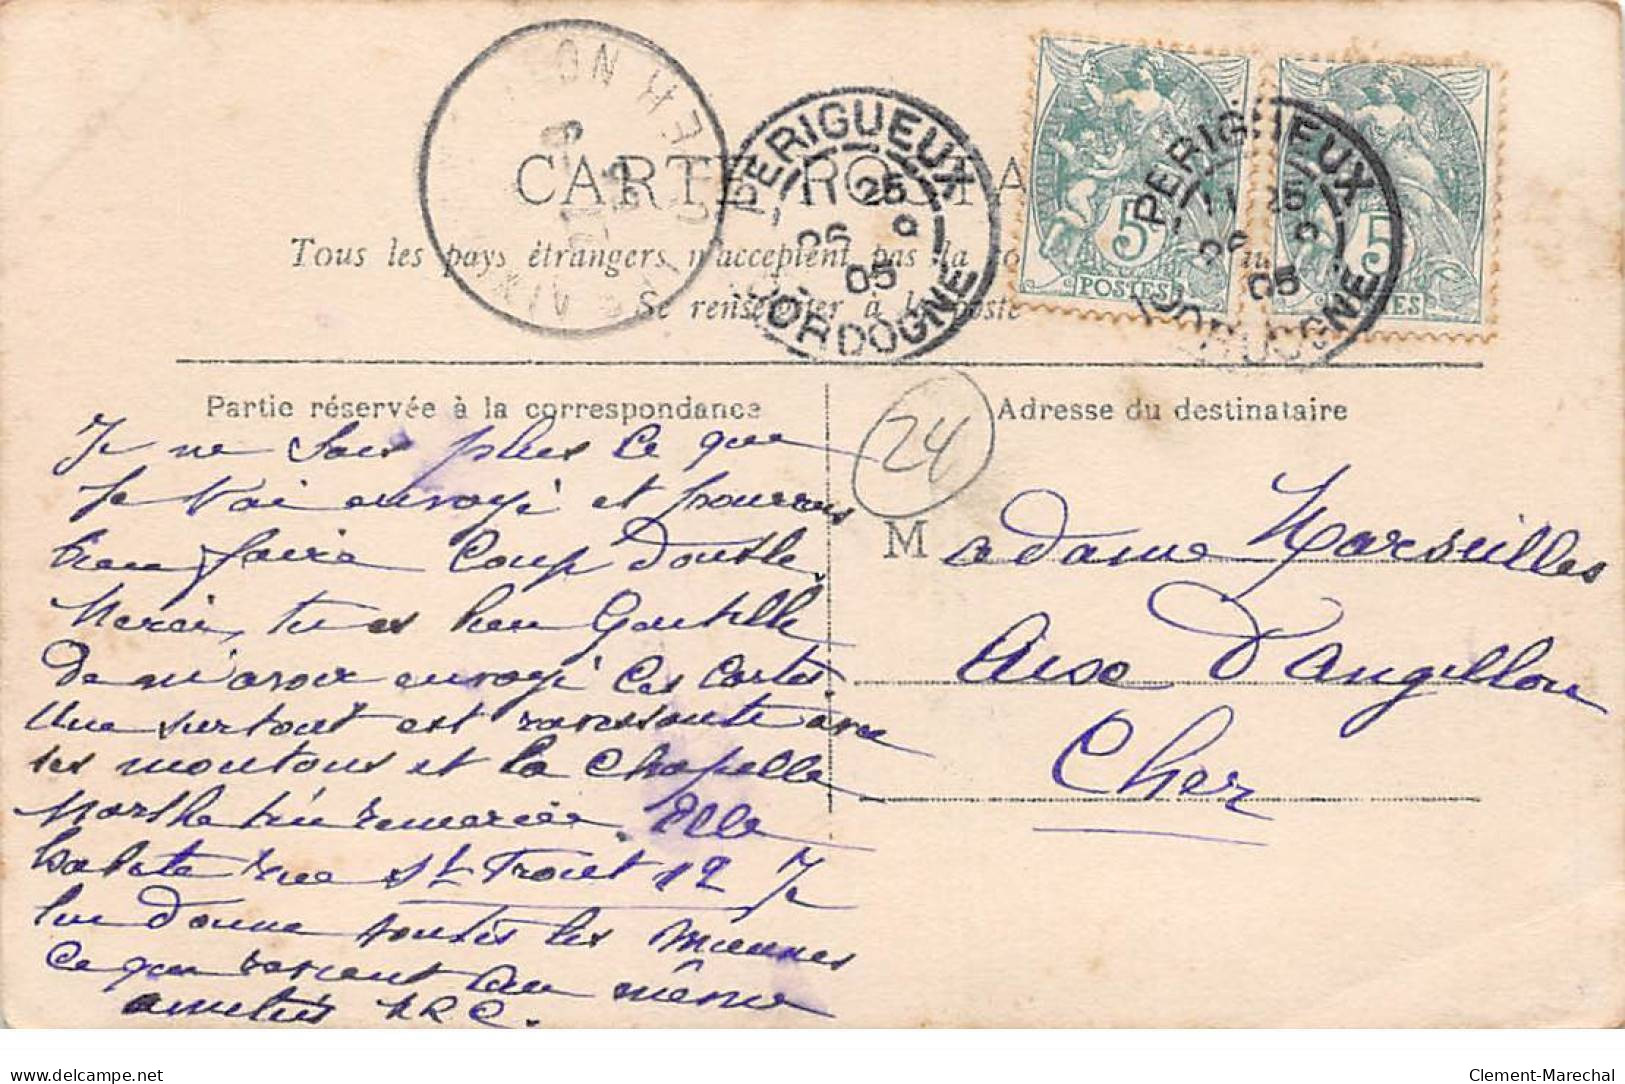 CARTE POSTA
Tous les pays étrangers n'acceptent pas la co
Se renseigner à la poste
PERIGUEUX
11 25
26 9
05
DORDOGNE
PERIGUEUX
11 25
26 9
05
DORDOGNE
5
POSTES
5
POSTES
Partie réservée à la correspondance
Adresse du destinataire
24
Je ne sais plus ce que
je t'ai envoyé et pourrais
bien faire coup double.
Merci, tu es bien Gentille
de m'avoir envoyé ces cartes
Une surtout est ravissante avec
ses moutons et la Chapelle
Marthe t'en remercie. Elle
habite rue St Front 12 Je
lui donne toutes les miennes
ce qui revient au même
amitiés
Madame Marseilles
Aix d'Angillon
Cher
delcampe.net
Clement-Marechal